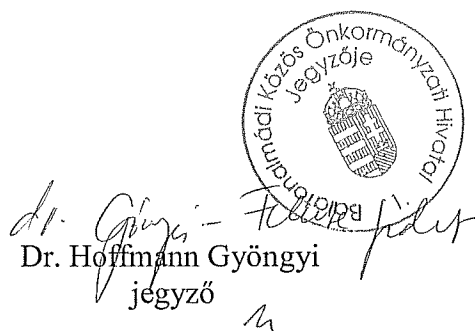 Balatonalmádi Közös Önkormányzati Hivatal
Jegyzője
dr.
Dr. Hoffmann Gyöngyi
jegyző